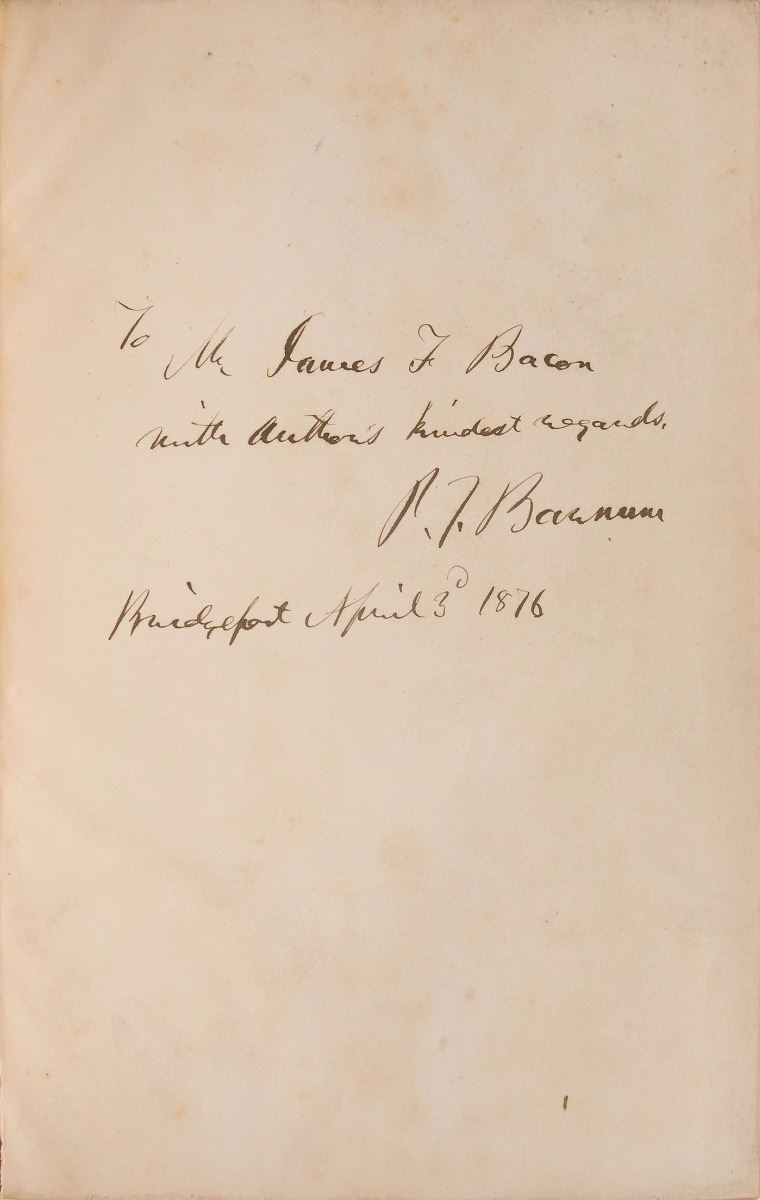 To
Mr James F Bacon
with Author's kindest regards.
P. T. Barnum
Bridgeport April 3d 1876